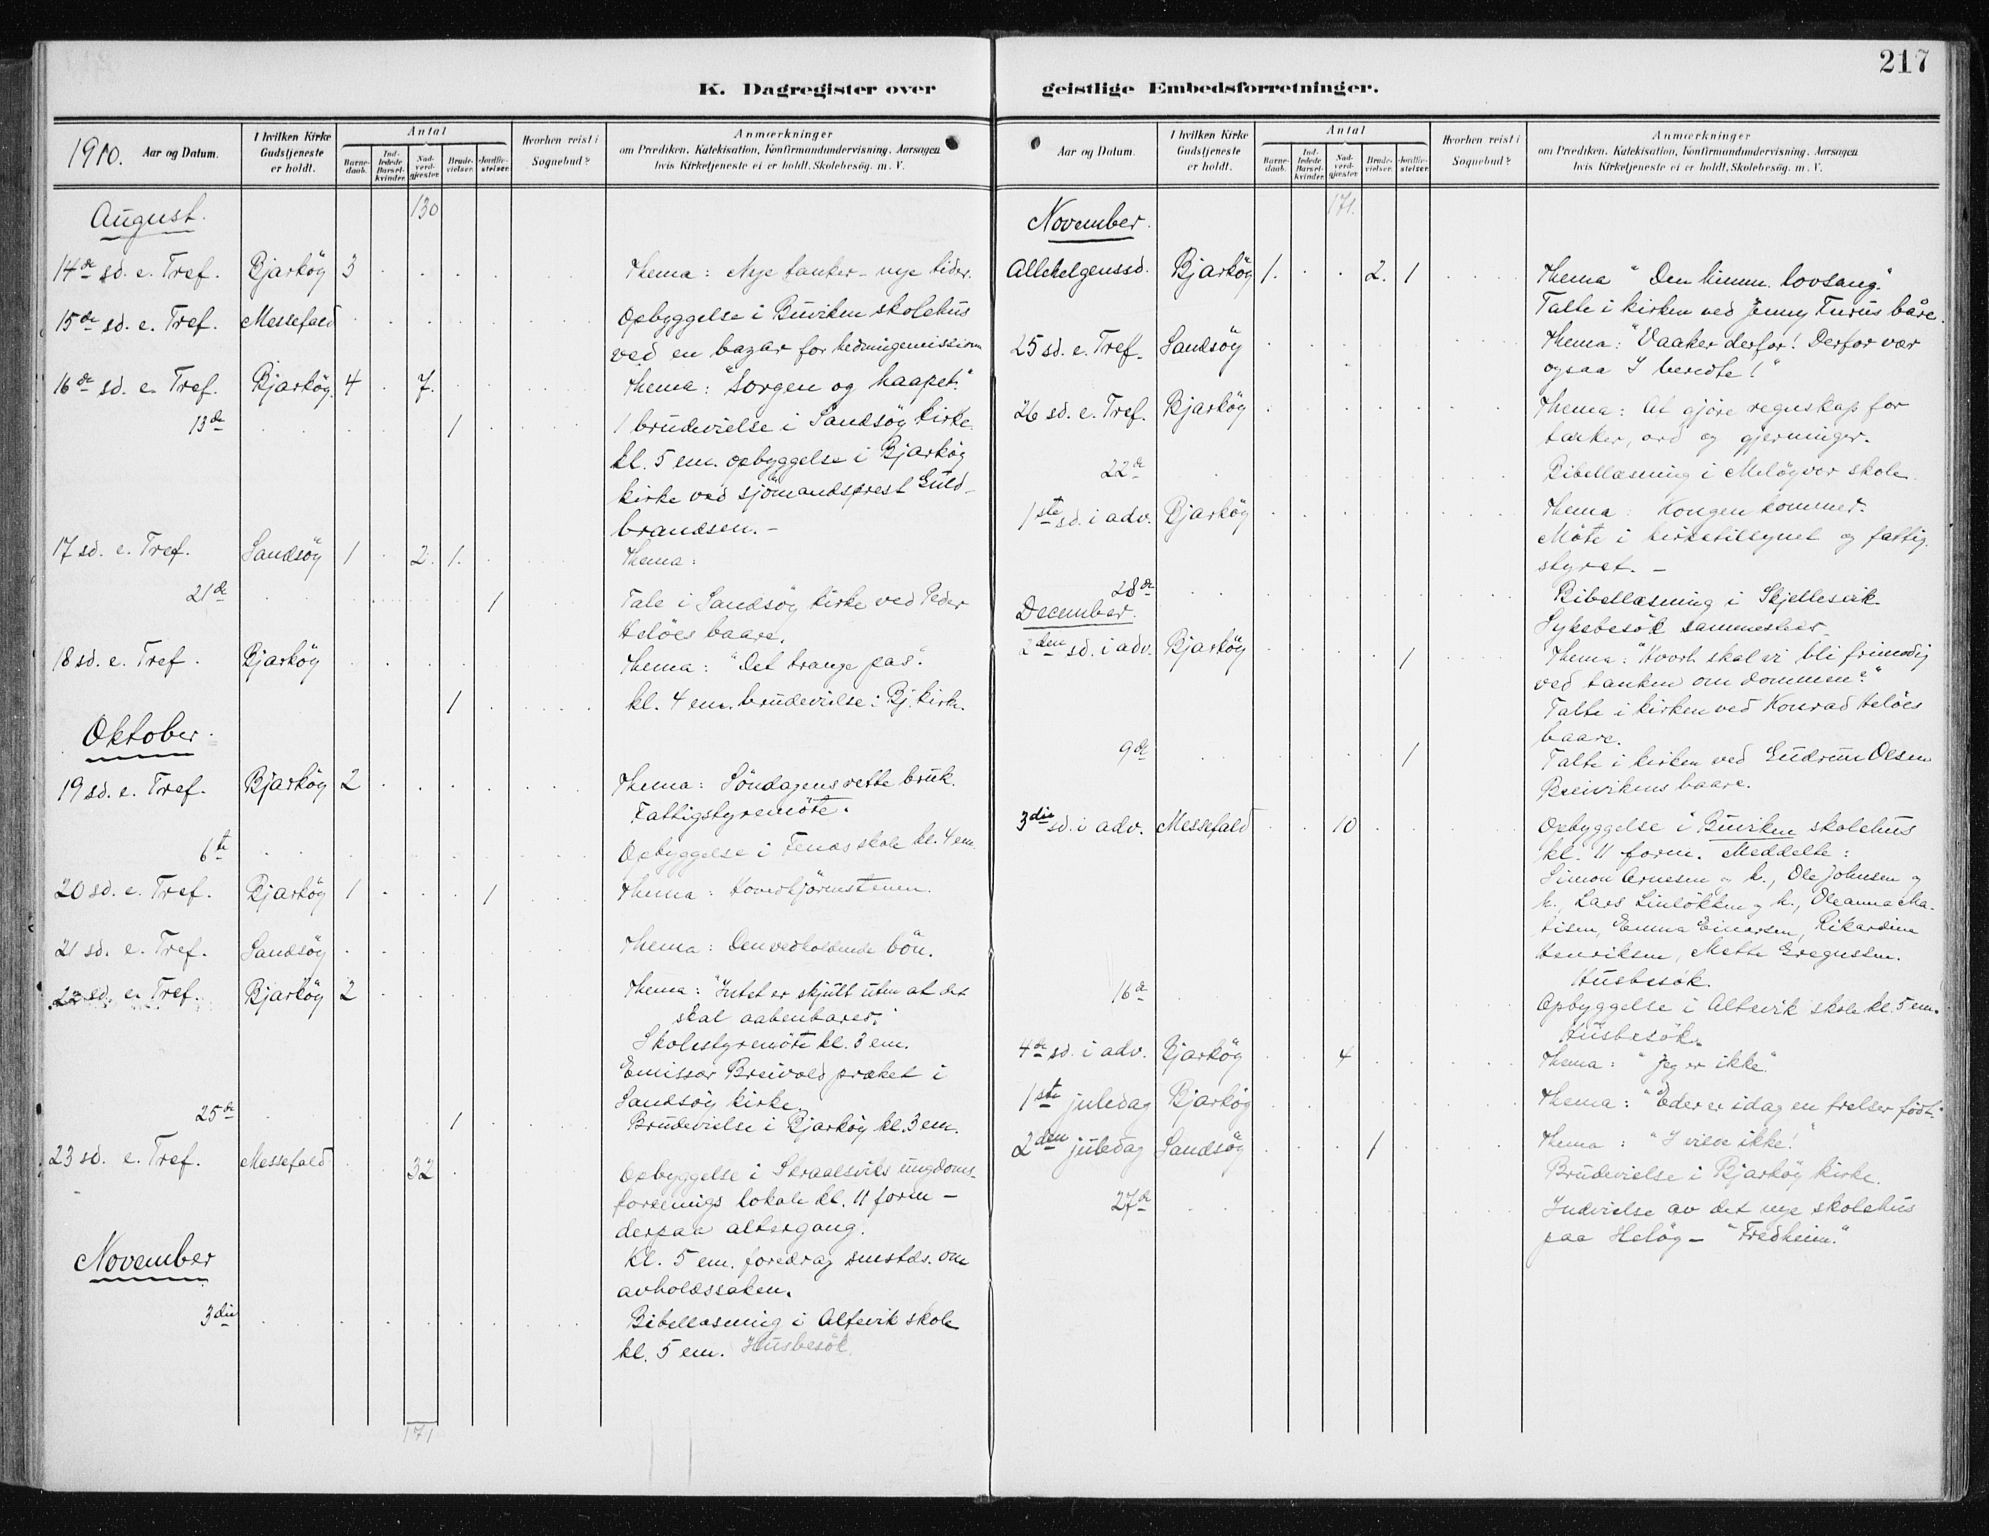 217
K. Dagregister over
geistlige Embedsforretninger.
1910. Aar og Datum.
I hvilken Kirke Gudstjeneste er holdt.
Antal
Barne-daab.
Ind-ledede Barsel-kvinder.
Nad-verd-gjester.
Brude-vielser.
Jordfæ-stelser.
Hvorhen reist i Sognebud?
Anmærkninger
om Prædiken. Katekisation, Konfirmandundervisning. Aarsagen
hvis Kirketjeneste ei er holdt. Skolebesøg. m. V.
August. 130
14de sd. e. Tref. Bjarköy 3 Thema: Nye tanker – nye tider.
15de sd. e. Tref. Messefald Opbyggelse i Buviken skolehus
ved en bazar for hedningemissionen
16de sd. e. Tref. Bjarköy. 4 7. Thema: "Sorgen og haapet."
13de 1 1 brudevielse i Sandsöy kirke.
kl. 5 em. opbyggelse i Bjarköy
kirke ved sjömandsprest Guld-
brandsen. –
17 sd. e. Tref. Sandsöy 1 2. 1. Thema:
21de 1 Tale i Sandsöy kirke ved Peder
Helöes baare.
18 sd. e. Tref. Bjarköy Thema: "Det trange pas".
1 kl. 4 em. brudevielse i Bj. kirke.
Oktober.
19 sd. e. Tref. Bjarköy 2 Thema: Söndagens rette bruk.
Fattigstyremöte.
6te Opbyggelse i Fenes skole kl. 4 em.
20 sd. e. Tref. Bjarköy 1 1 Thema: Hovedhjörnestenen.
21 sd. e. Tref. Sandsöy Thema: Den vedholdende bön.
22 sd. e. Tref. Bjarköy 2 Thema: "Intet er skjult uten at det
skal aabenbares."
Skolestyremöte kl. 3 em.
Emissær Breivold præket i
Sandsöy kirke.
25de 1 Brudevielse i Bjarköy kl. 3 em.
23 sd. e. Tref. Messefald 32 Opbyggelse i Skraalsviks ungdoms-
forenings lokale kl. 11 form –
derpaa altergang.
Kl. 5 em. foredrag smstds. om
avholdssaken.
November
3die Bibellæsning i Altevik skole
kl. 5 em. Husbesök.
171
Aar og Datum.
I hvilken Kirke Gudstjeneste er holdt.
Antal
Barne-daab.
Ind-ledede Barsel-kvinder.
Nad-verd-gjester.
Brude-vielser.
Jordfæ-stelser.
Hvorhen reist i Sognebud?
Anmærkninger
om Prædiken. Katekisation, Konfirmandundervisning. Aarsagen
hvis Kirketjeneste ei er holdt. Skolebesøg. m. V.
November. 171.
Allehelgenssd. Bjarköy 1. 2. 1 Thema "Den himm. lovsang."
Talte i kirken ved Jenny Furus båre.
25 sd. e. Tref. Sandsöy Thema: "Vaaker derfor! Derfor vær
ogsaa I beredte!"
26 sd. e. Tref. Bjarköy Thema: At gjöre regnskap for
tanker, ord og gjerninger.
22de Bibellæsning i Melöyvær skole.
1ste sd. i adv. Bjarköy Thema: Kongen kommer.
Möte i kirketilsynet og fattig-
styret. –
28de Bibellæsning i Skjellesvik.
Sykebesök sammesteds.
December.
2den sd. i adv. Bjarköy 1 Thema: "Hvorl. skal vi bli frimodig
ved tanken om dommen?"
Talte i kirken ved Konrad Helöes
baare.
9de 1 Talte i kirken ved Gudrun Olsen
Breivikens baare.
3die sd. i adv. Messefald 10 Opbyggelse i Buviken skolehus
kl. 11 form. Meddelte:
Simon Arnesen og h., Ole Johnsen og
h., Lars Linlökken og h., Oleanna Ma-
tisen, Emma Einarsen, Rikardine
Henriksen, Mette Gregussen.
Husbesök.
16de Opbyggelse i Altevik skole kl. 5 em.
Husbesök.
4de sd. i adv. Bjarköy 4 Thema: "Jeg er ikke."
1ste juledag Bjarköy Thema: "Eder er idag en frelser födt."
2den juledag Sandsöy 1 Thema: "I vilde ikke!"
Brudevielse i Bjarköy kirke.
27de Indvielse av det nye skolehus
paa Helöy – "Fredheim."